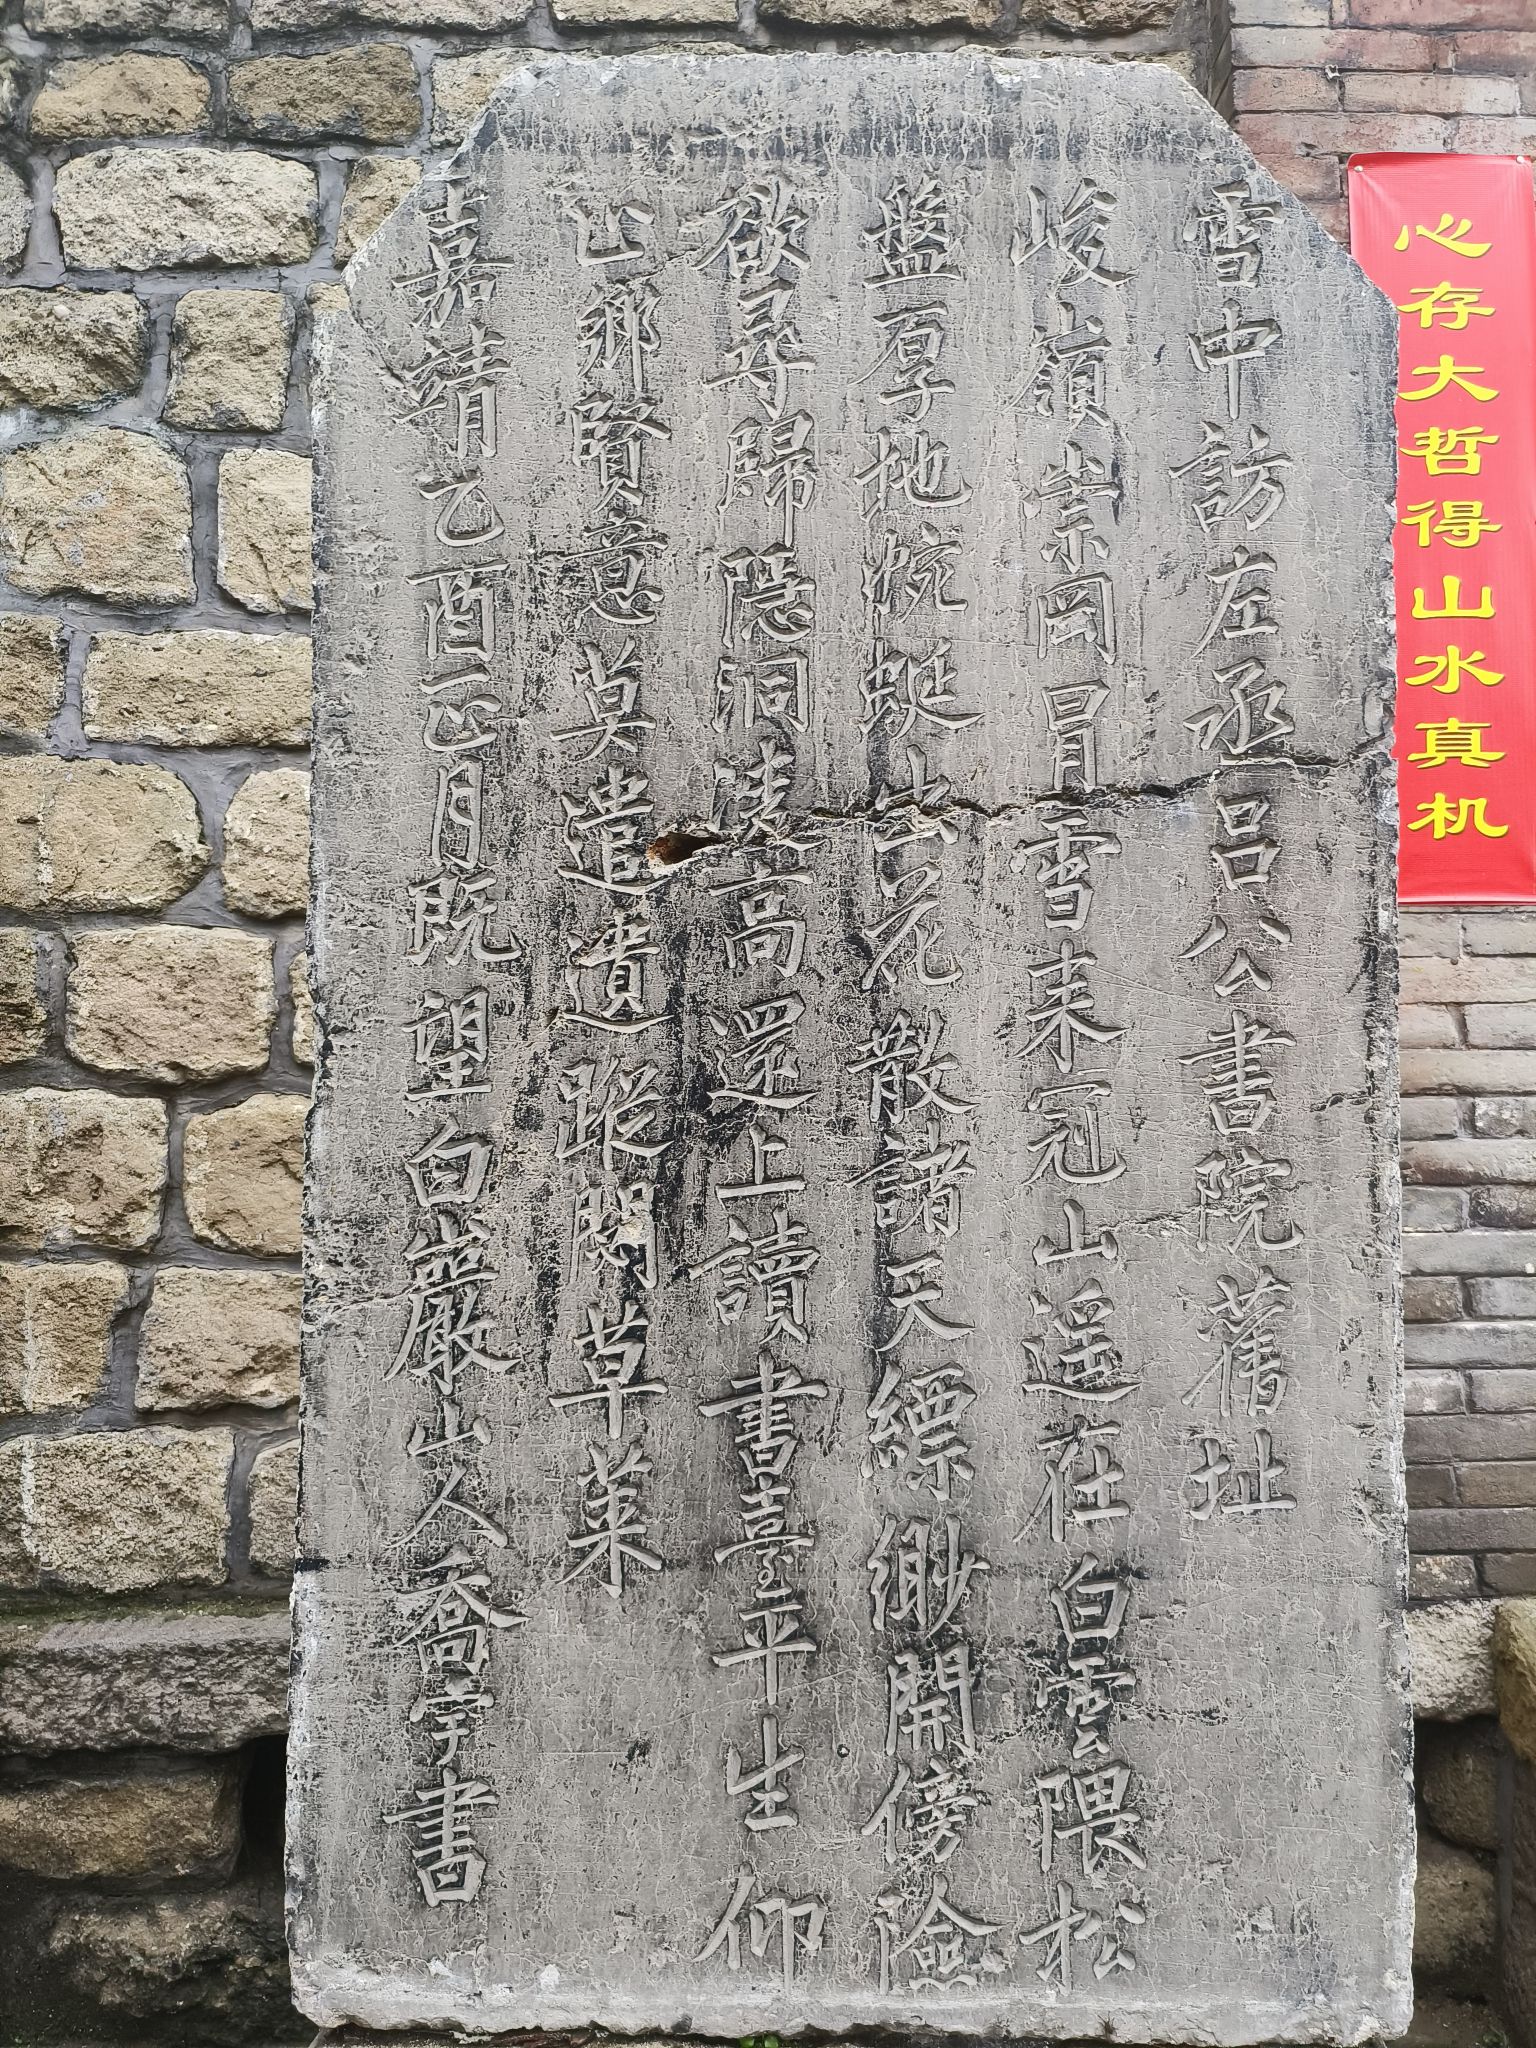 心存大哲得山水真机
雪中訪左丞呂公書院舊址
峻嶺崇岡冒雪来冠山遥在白雲隈松
盤厚地蜿蜒出花散諸天縹緲開傍險
欲尋歸隱洞凌高還上讀書臺平生仰
止鄉賢意莫遣遺蹤閟草莱
嘉靖乙酉正月既望白巖山人喬宇書